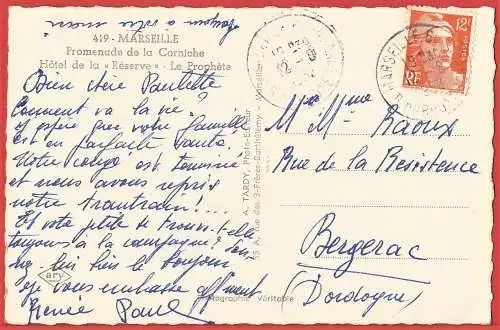 toujours à votre mari
419 - MARSEILLE
Promenade de la Corniche
Hôtel de la « Réserve » - Le Prophète
Bien chère Paulette
Comment va la vie ?
et espère que votre famille
est en parfaite santé.
Notre congé est terminé
et nous avons repris
notre traintrain !...
Et votre petite se trouve-t-elle
toujours à la campagne ?
bien le bonjour
je vous embrasse affmment
Renée Paul
ary
A. TARDY, Photo-Editeur
3-Frères-Barthélemy - Marseille
Photographie Véritable
MARSEILLE
12F
POSTES
RF
Mr Mme Raoux
Rue de la Resistence
Bergerac
(Dordogne)